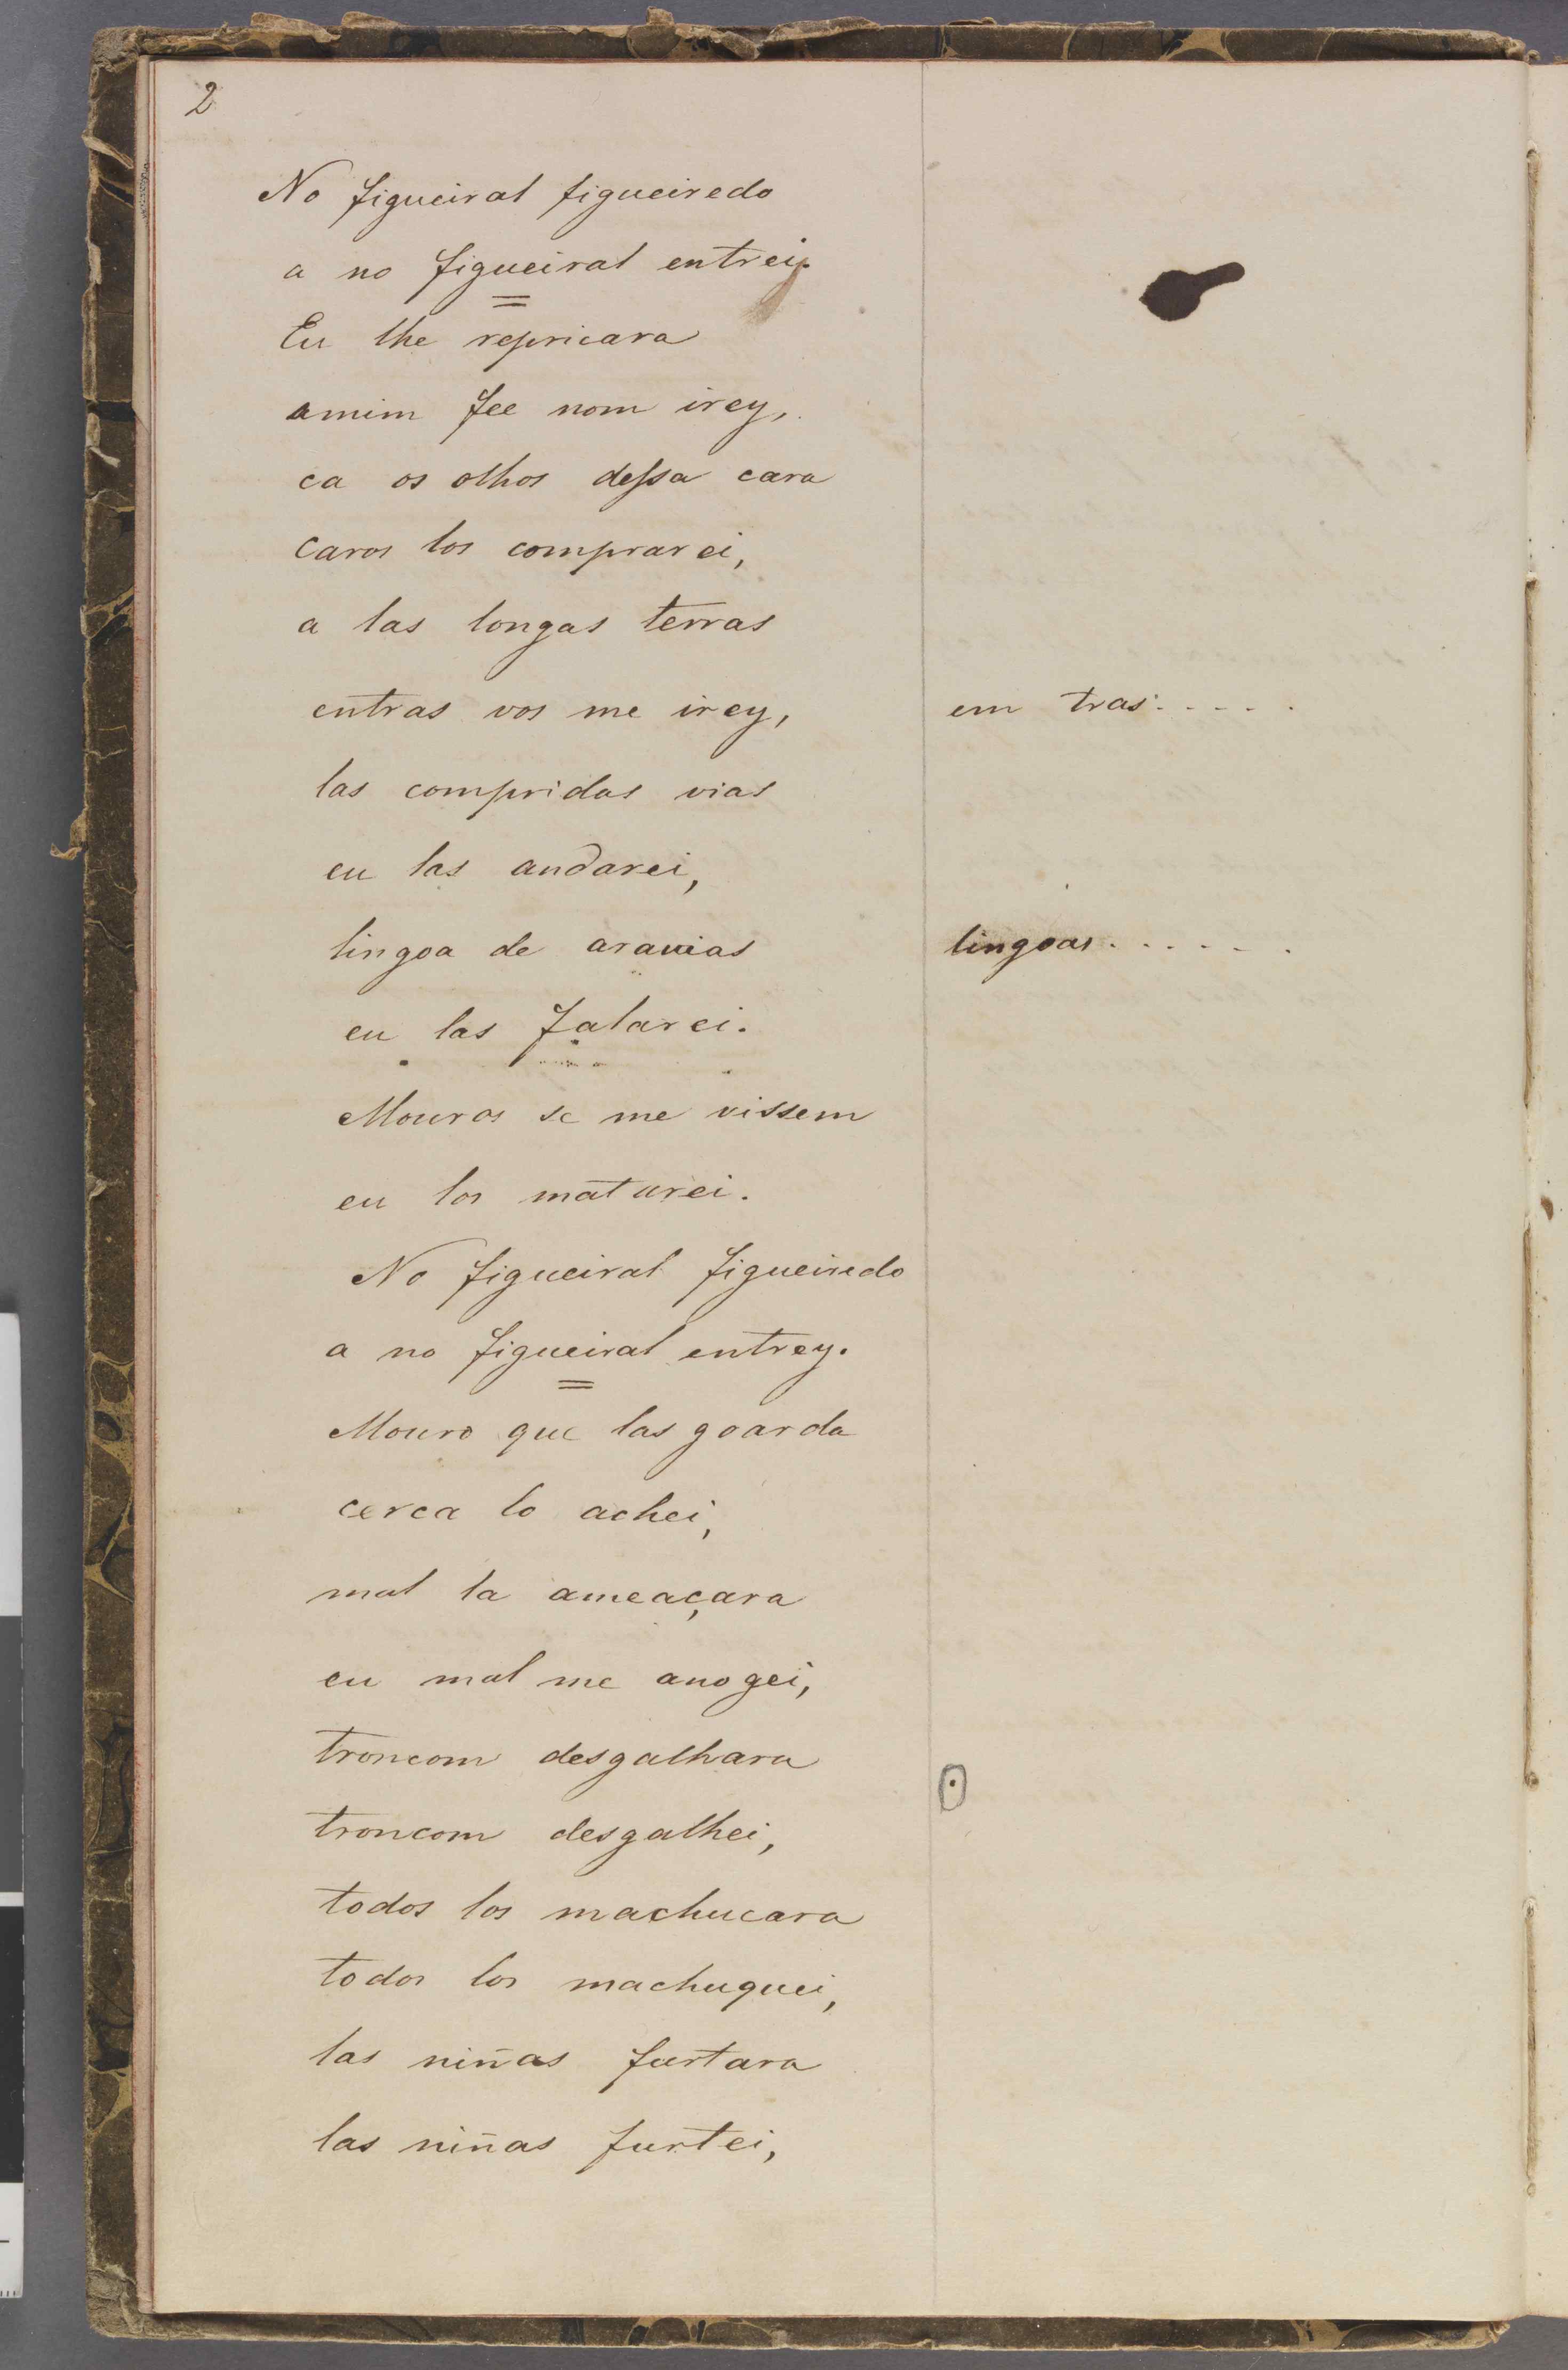 2
No figueiral figueiredo
a no figueiral entrei.
=
Eu lhe repricara
amim fee nom irey,
ca os olhos deſsa cara
caros los comprarei,
a las longas terras
entras vos me irey, em tras.....
las compridas vias
eu las andarei,
lingoa de aravias lingoas......
eu las falarei.
Mouros se me vissem
eu los matarei.
No figueiral figueiredo
a no figueiral entrey.
=
Mouro que las goarda
cerca lo achei,
mal la ameaçara
eu mal me anogei,
troncom desgalhara
troncom desgalhei,
todos los machucara
todos los machuquei,
las niñas furtara
las niñas furtei,